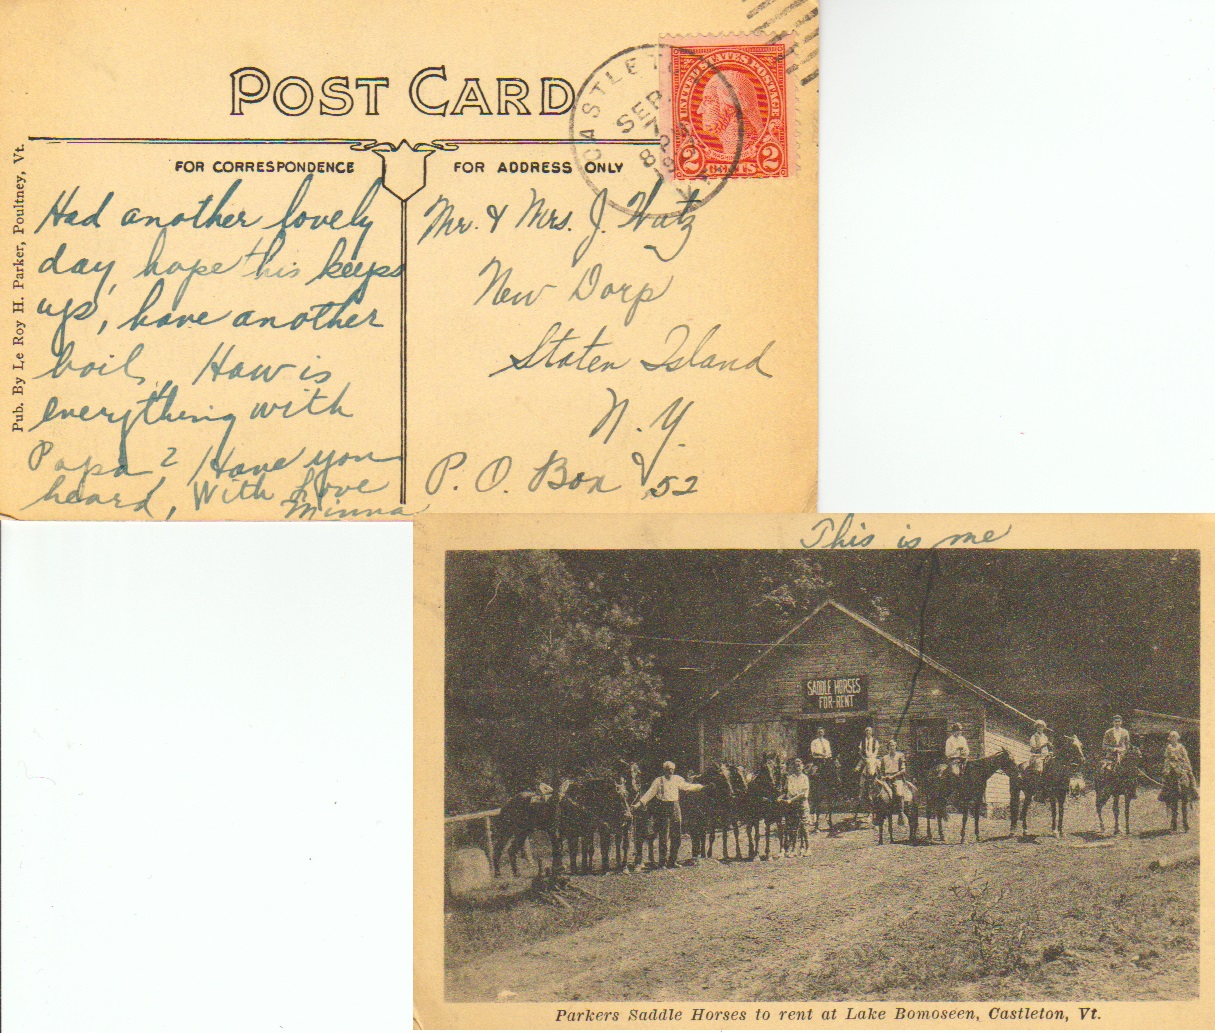 POST CARD
FOR CORRESPONDENCE
FOR ADDRESS ONLY
Pub. By Le Roy H. Parker, Poultney, Vt.
CASTLETON
SEP
UNITED STATES POSTAGE
2 CENTS 2
Had another lovely
day, hope this keeps
up, have another
boil. How is
everything with
Papa? Have you
heard, With Love
Minna
Mr. & Mrs. J. Watz
New Dorp
Staten Island
N. Y.
P. O. Box 52
This is me
SADDLE HORSES
FOR RENT
Parkers Saddle Horses to rent at Lake Bomoseen, Castleton, Vt.